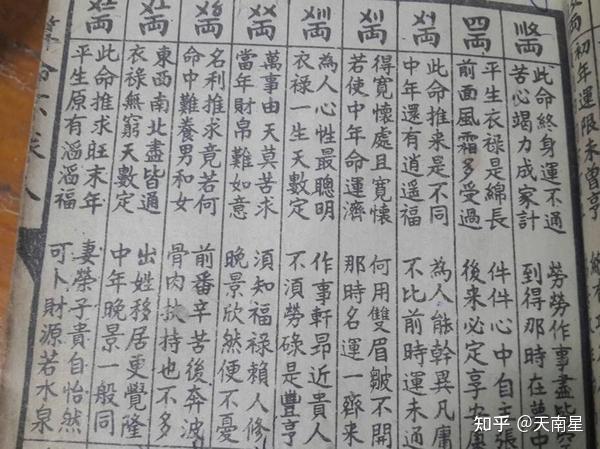 初年運限未曾亨
此命終身運不通 勞勞作事盡皆空
苦心竭力成家計 到得那時在夢中
四両
平生衣禄是綿長 件件心中自主張
前面風霜多受過 後来必定享安康
〤〡両
此命推来是不同 為人能幹異凡庸
中年還有逍遥福 不比前時運未通
〤〢両
得寛懷處且寛懷 何用雙眉皺不開
若使中年命運濟 那時名運一齊来
〤〣両
為人心性最聰明 作事軒昂近貴人
衣禄一生天數定 不須勞碌是豐亨
〤〤両
萬事由天莫苦求 須知福禄賴人修
當年財帛難如意 晚景欣然便不憂
名利推求竟若何 前番辛苦後奔波
命中難養男和女 骨肉扶持也不多
東西南北盡皆通 出姓移居更覺隆
衣禄無窮天數定 中年晚景一般同
此命推求旺末年 妻榮子貴自怡然
平生原有滔滔福 可卜財源若水泉
知乎 @天南星